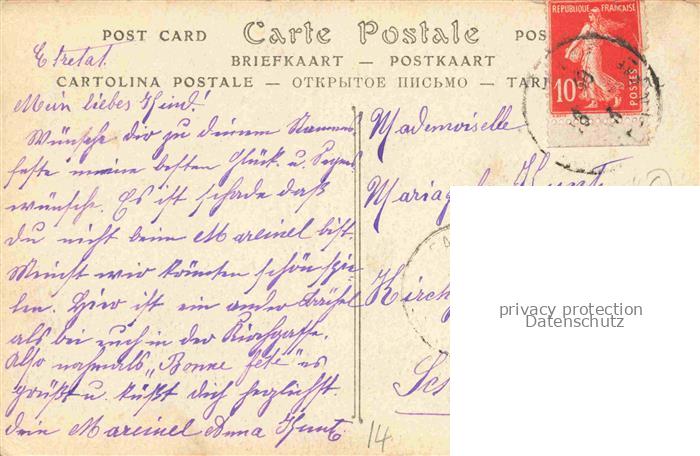 POST CARD Carte Postale POS
BRIEFKAART — POSTKAART
CARTOLINA POSTALE — ОТКРЫТОЕ ПИСЬМО — TARJ
REPUBLIQUE FRANÇAISE
10c
POSTES
Etretat.
Mein liebes Kind!
Wünsche dir zu deinem Namens
feste meine besten Glück- u. Segens
wünsche. Es ist schade daß
du nicht beim Mareinel bist.
Meinst wir könnten schön spie
len. Hier ist ein ander
als bei euch in der Kirchgasse.
Also nahmals „Bonne fête" es
grüßt u. küßt dich herzlichst
dein Mareinel Anna Kunt.
Mademoiselle
Kunt
Kirchg
14
privacy protection
Datenschutz